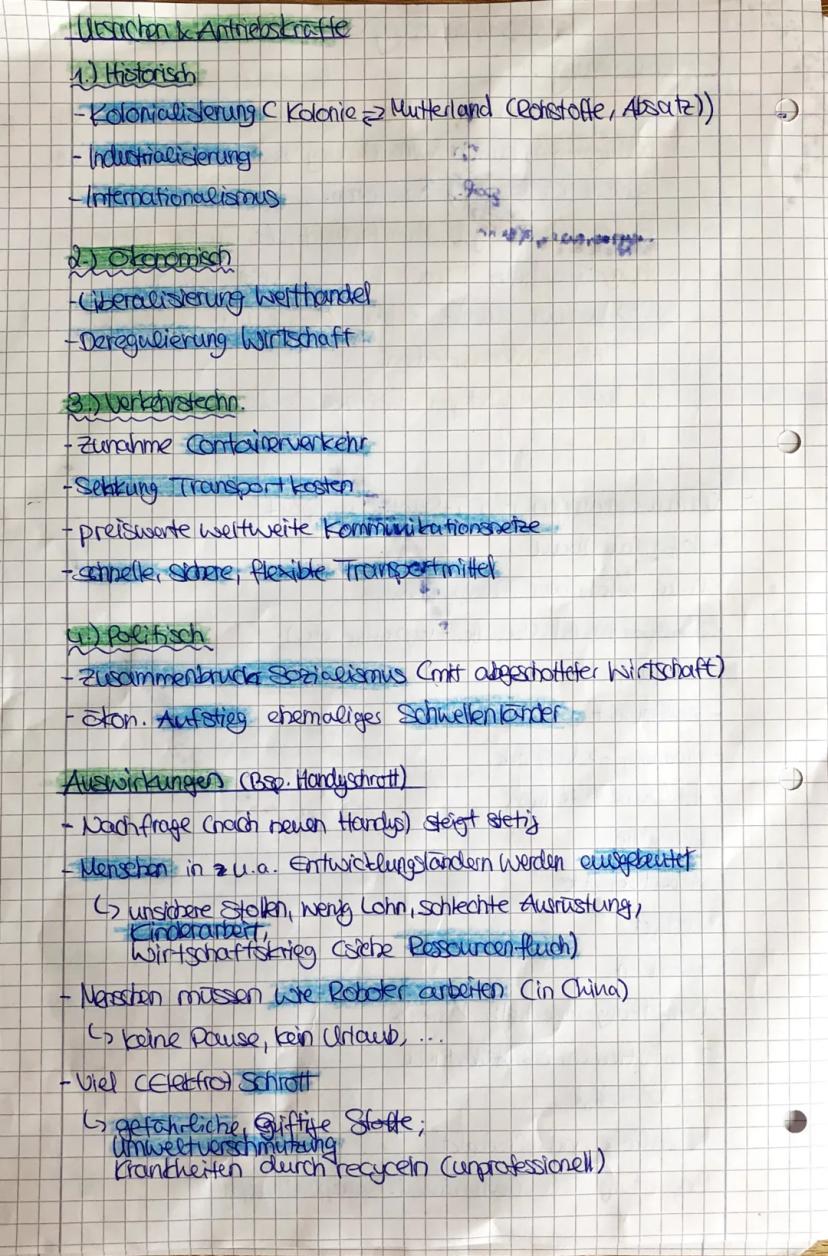 Ursachen & Antriebskräfte
1.) Historisch
- Kolonialisierung ( Kolonie ⇄ Mutterland (Rohstoffe, Absatz))
- Industrialisierung
- Internationalismus
2.) Ökonomisch
- Liberalisierung Welthandel
- Deregulierung Wirtschaft
3.) Verkehrstechn.
- Zunahme Containerverkehr
- Senkung Transportkosten
- preiswerte weltweite Kommunikationsnetze
- schnelle, sichere, flexible Transportmittel
4.) Politisch
- Zusammenbruch Sozialismus (mit abgeschotteter Wirtschaft)
- ökon. Aufstieg ehemaliges Schwellenländer
Auswirkungen (Bsp. Handyschrott)
- Nachfrage (nach neuen Handys) steigt stetig
- Menschen in u.a. Entwicklungsländern werden ausgebeutet
↳ unsichere Stollen, wenig Lohn, schlechte Ausrüstung,
Kinderarbeit,
Wirtschaftskrieg (siehe Ressourcenfluch)
- Menschen müssen wie Roboter arbeiten (in China)
↳ keine Pause, kein Urlaub, ...
- Viel (Elektro) Schrott
↳ gefährliche, giftige Stoffe;
Umweltverschmutzung
Krankheiten durch recyceln (unprofessionell)